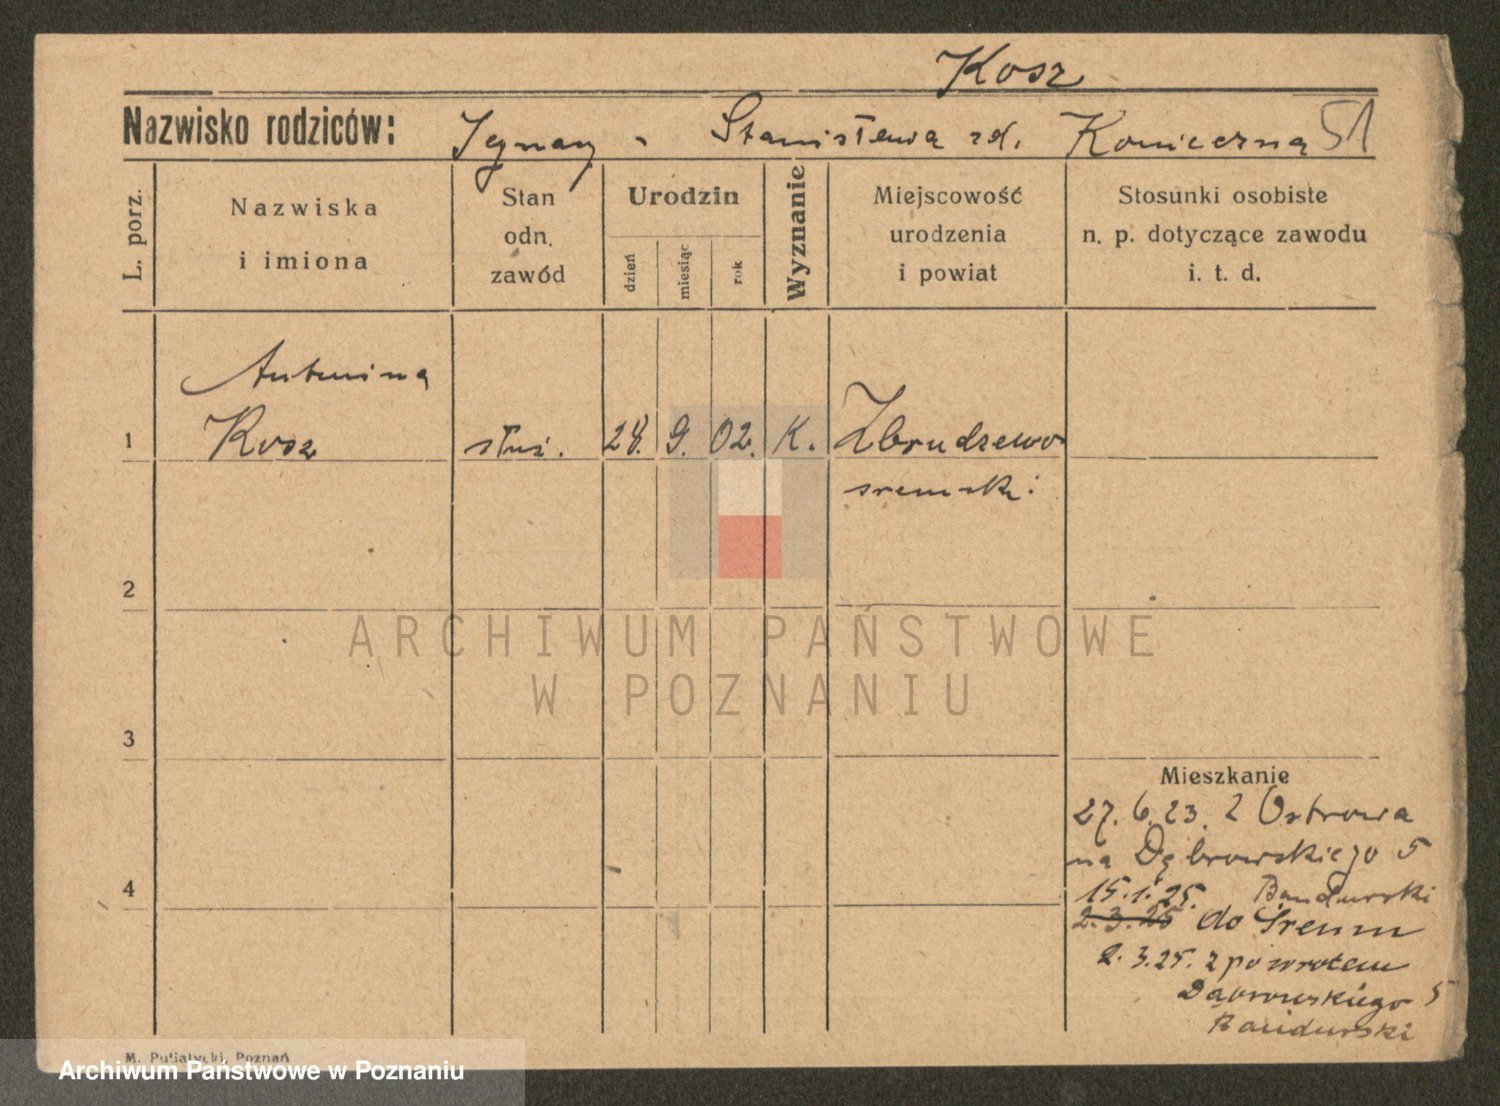 Kosz
Nazwisko rodziców: Ignacy - Stanisława zd. Konieczna 51
L. porz.
Nazwiska
i imiona
Stan
odn.
zawód
Urodzin
dzień
miesiąc
rok
Wyznanie
Miejscowość
urodzenia
i powiat
Stosunki osobiste
n. p. dotyczące zawodu
i. t. d.
Antonina
1 Kosz służ. 28. 9. 02. K. Zbrudzewo
sremski
2
ARCHIWUM PAŃSTWOWE
W POZNANIU
3
Mieszkanie
27. 6. 23. z Ostrowa
na Dąbrowskiego 5
4
15. 1. 25. Bandurski
2. 3. 25 do Śremu
2. 3. 25. z powrotem
Dąbrowskiego 5
Bandurski
M. Putiatycki, Poznań
Archiwum Państwowe w Poznaniu